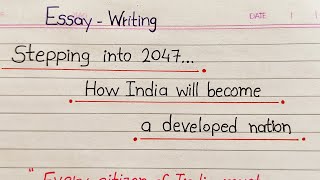 Essay - Writing
DATE
Stepping into 2047...
How India will become
a developed nation
" Every citizen of India must